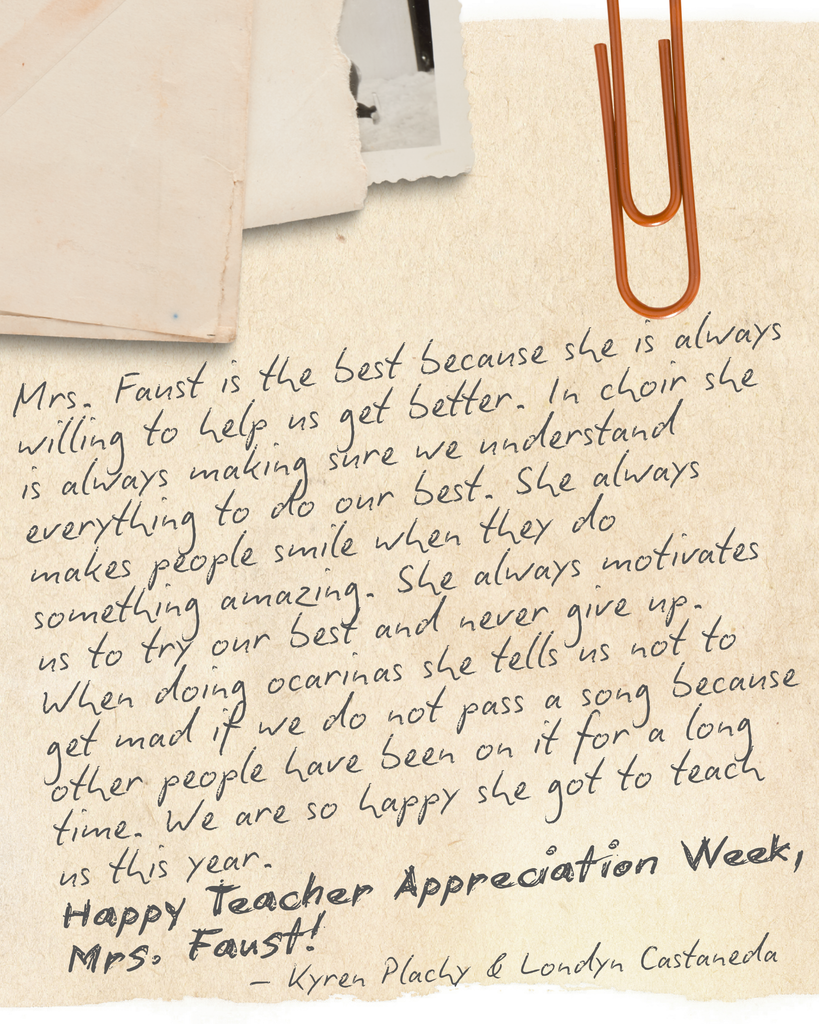 Mrs. Faust is the best because she is always
willing to help us get better. In choir she
is always making sure we understand
everything to do our best. She always
makes people smile when they do
something amazing. She always motivates
us to try our best and never give up.
When doing ocarinas she tells us not to
get mad if we do not pass a song because
other people have been on it for a long
time. We are so happy she got to teach
us this year.
Happy Teacher Appreciation Week,
Mrs. Faust!
– Kyren Plachy & Londyn Castaneda